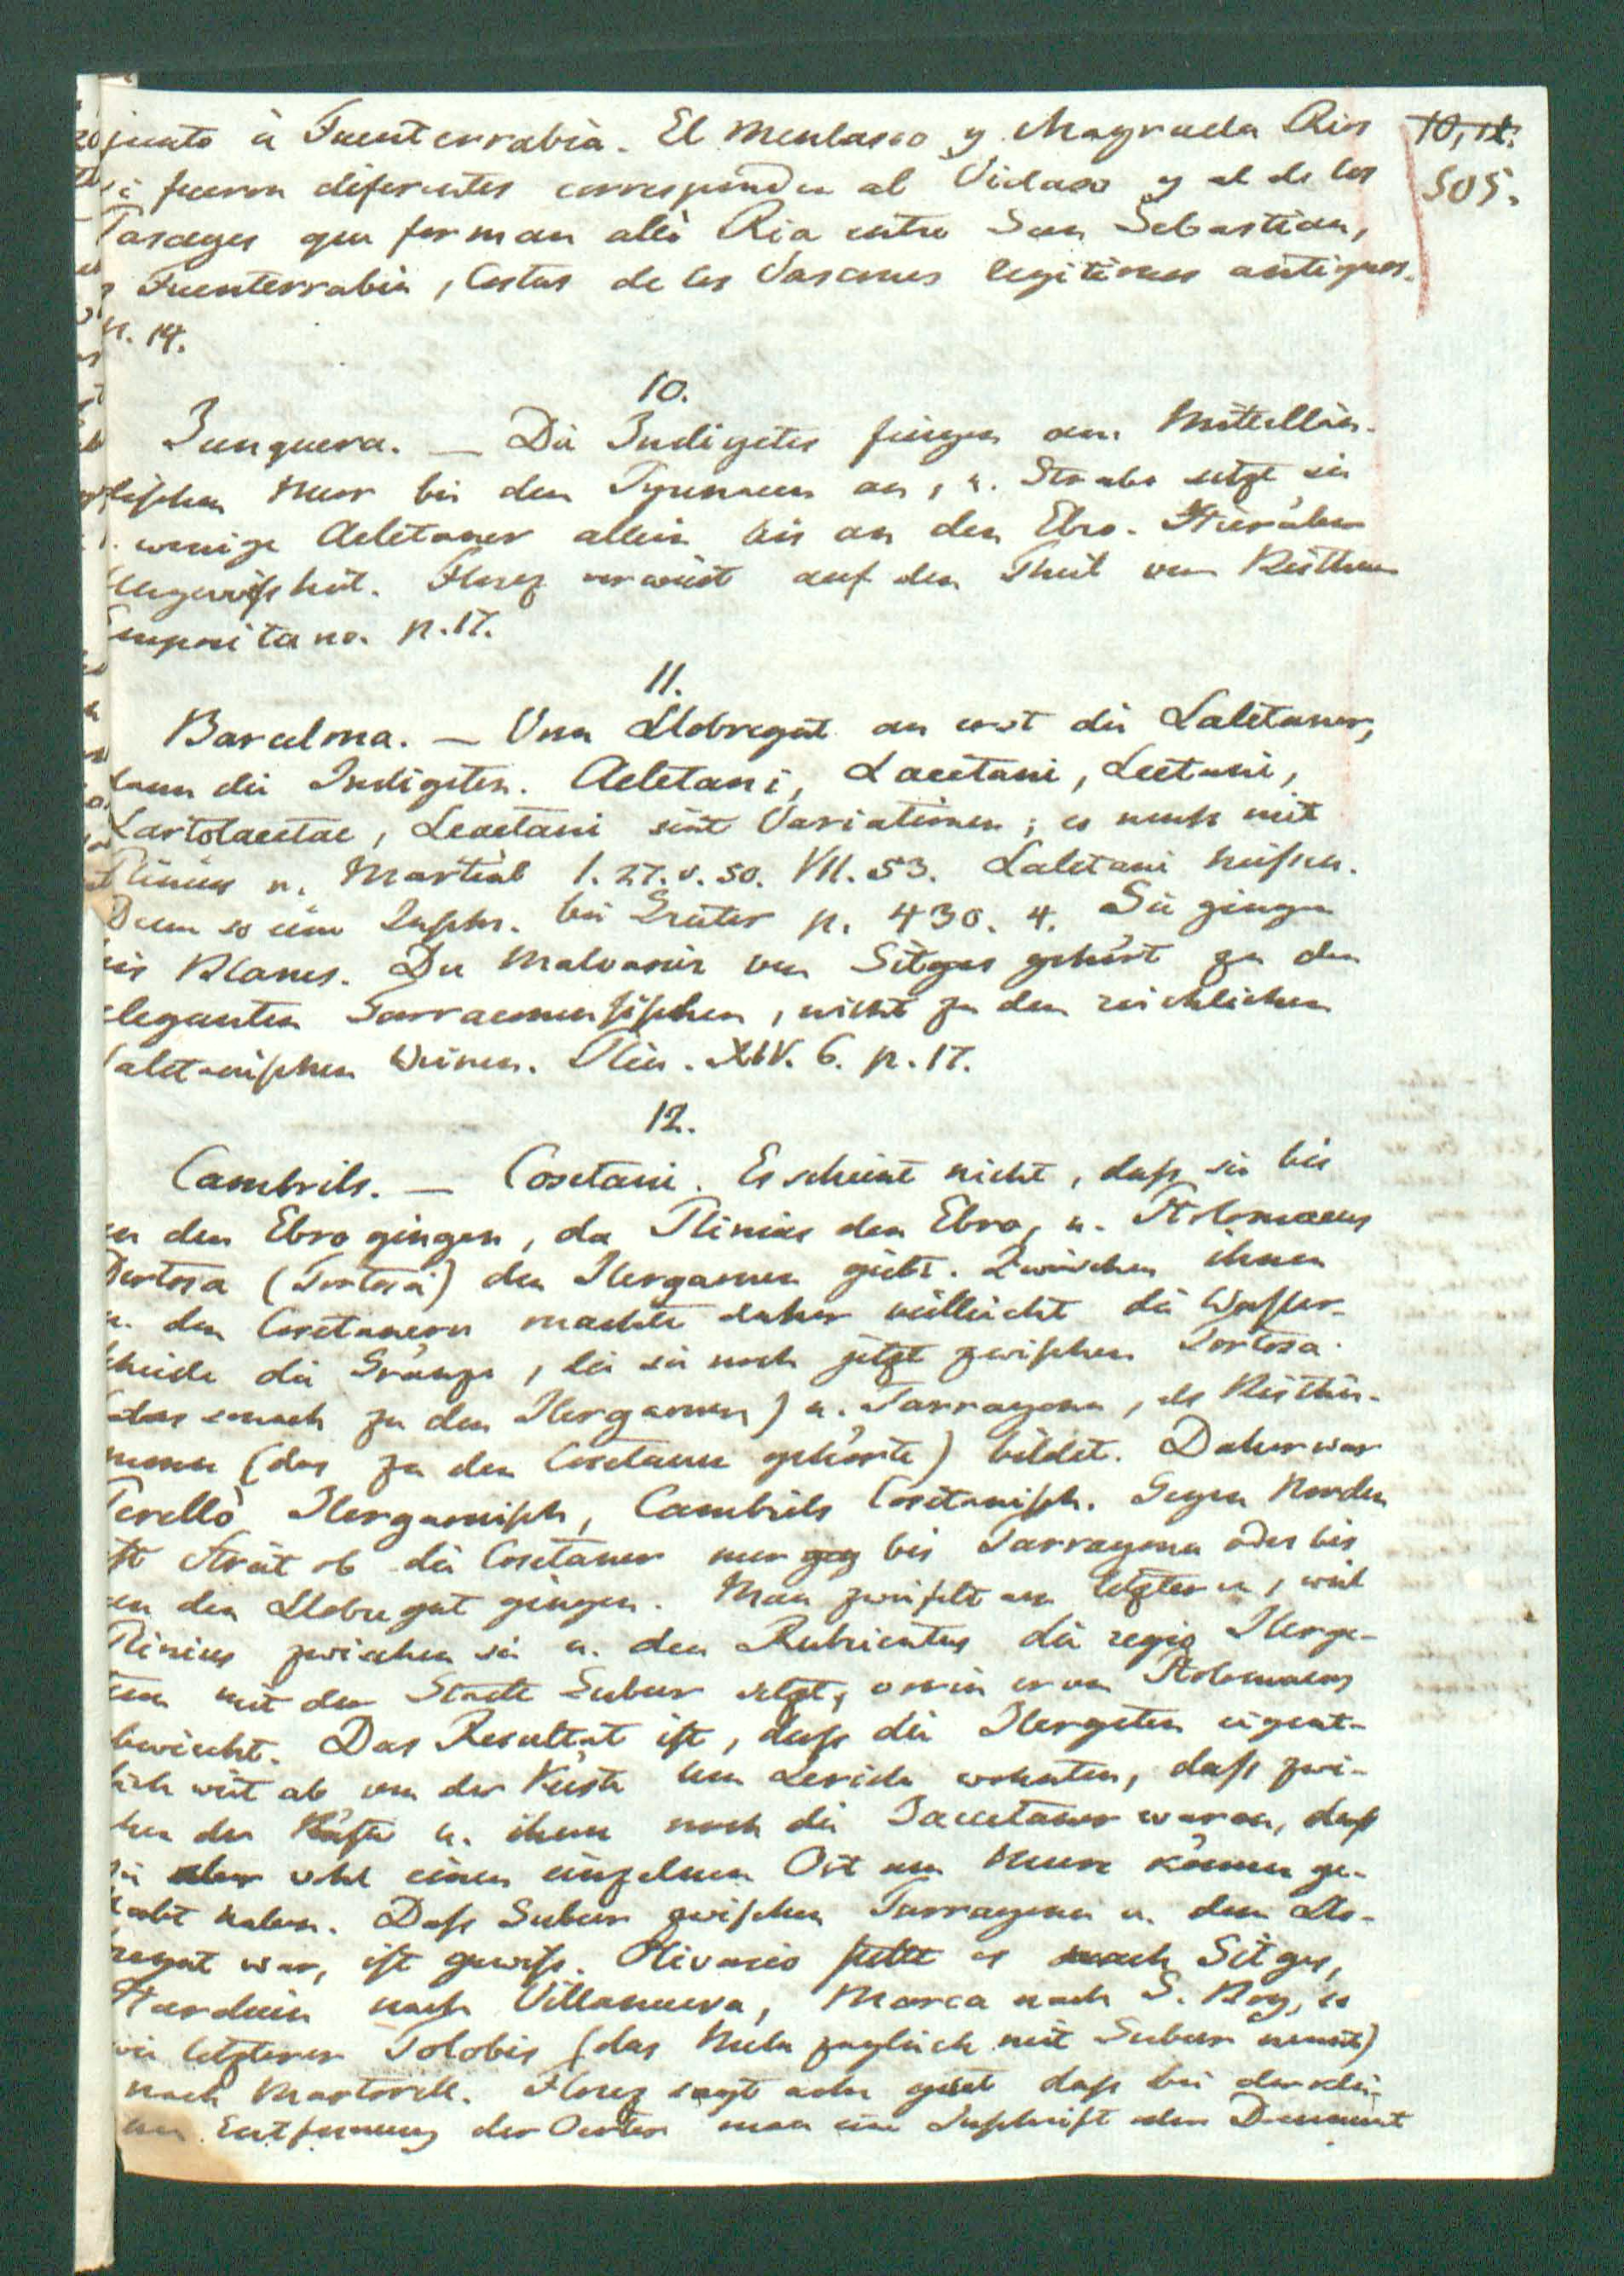 junto à Fuenterrabia. El Menlasco y Magrada Rios
si fueron diferentes corresponden al Vidaso y al de los
Pasages que forman alli Ria entre San Sebastian,
Fuenterrabia, Costas de los Vascones legitimos antiguos.
p. 14.
10, 12.
505.
10.
Junquera. — Die Indigetes fingen am Mittellän-
dischen Meer bei den Pyrenaeen an, u. Strabo setzt sie
wenige Aeletaner allein bis an den Ebro. Hierüber
Ungewißheit. Florez verweist auf den Theil vom Bisthum
Emporitano. p. 17.
11.
Barcelona. — Vom Llobregat an erst die Laletaner,
dann die Indigeten. Aeletani, Lacetani, Leetani,
Lartolaeetae, Leaetani sind Variationen; es muß mit
Plinius u. Martial 1. 27. v. 50. VII. 53. Laletani heißen.
Denn so eine Inschr. bei Gruter p. 430. 4. Sie gingen
bis Blanes. Der Malvasier von Sitges gehört zu den
eleganten Tarraconensischen, nicht zu den reichlichen
laletanischen Weinen. Plin. XIV. 6. p. 17.
12.
Cambrils. — Cosetani. Es scheint nicht, daß sie bis
an den Ebro gingen, da Plinius den Ebro, u. Ptolemaeus
Dertosa (Tortosa) den Ilergaonen giebt. Zwischen ihnen
u. den Cosetanern machte daher vielleicht die Wasser-
scheide die Gränze, die sie noch jetzt zwischen Tortosa
(das sonach zu den Ilergaonen) u. Tarragona, als Bisthü-
mern (das zu den Cosetanen gehörte) bildet. Daher war
Perellò Ilergaonisch, Cambrils Cosetanisch. Gegen Norden
ist Streit ob die Cosetaner nur geg bis Tarragona oder bis
an den Llobregat gingen. Man zweifelt am letzteren, weil
Plinius zwischen sie u. den Rubricatus die regio Ilerge-
tum mit der Stadt Subur setzt, worin er von Ptolemaeus
abweicht. Das Resultat ist, daß die Ilergeten eigent-
lich weit ab von der Küste um Lerida wohnten, daß zwi-
schen der Küste u. ihnen noch die Jaccetaner waren, daß
sie aber wohl einen einzelnen Ort am Meere können ge-
habt haben. Daß Subur zwischen Tarragona u. dem Llo-
bregat war, ist gewiß. Olivario setzt es nach Sitges,
Harduin nach Villanueva, Marca nach S. Boy, so
wie letzterer Tolobis (das Mela zugleich mit Subur nennt)
nach Martorell. Florez sagt sehr gut daß bei der klei-
nen Entfernung der Oerter man eine Inschrift oder Document